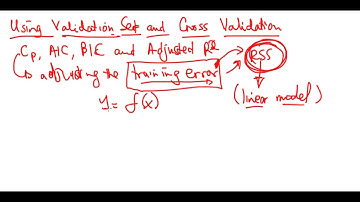 Using Validation Set and Cross Validation
Cp, AIC, BIC and Adjusted R²
adjusting the training error RSS
(linear model)
Y = f(x)